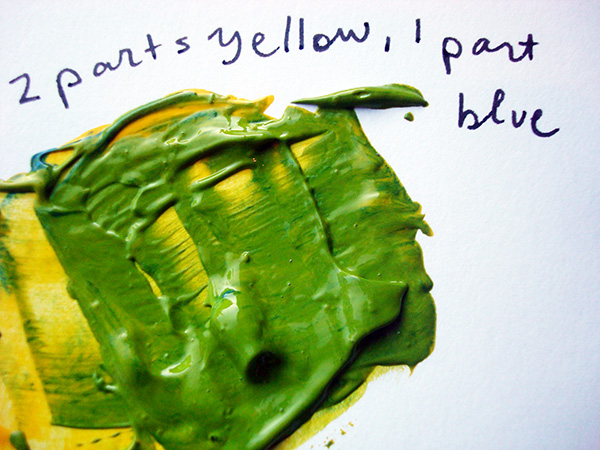 2 parts yellow, 1 part
blue